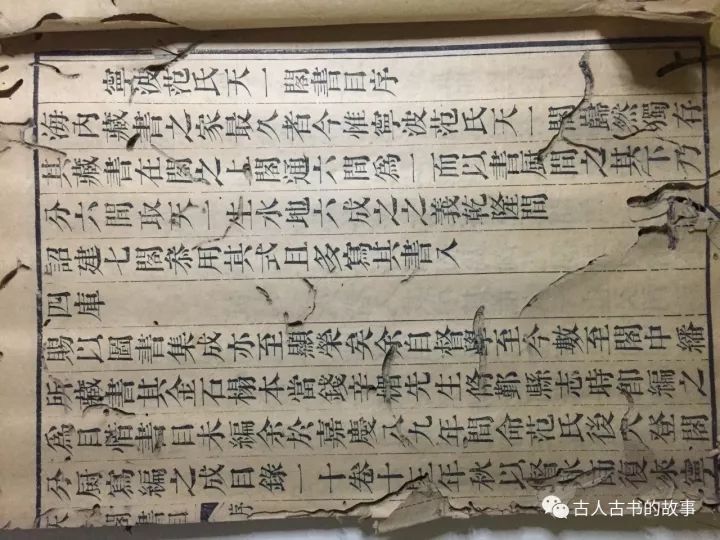 寧波范氏天一閣書目序
海內藏書之家最久者今惟寧波范氏天一閣巋然獨存
其藏書在閣之上閣通六間爲一而以書厨間之其下乃
分六間取天一生水地六成之之義乾隆間
詔建七閣叅用其式且多寫其書入
四庫
賜以圖書集成亦至顯榮矣余自督學至今數至閣中繙
所藏書其金石榻本當錢辛楣先生脩鄞縣志時卽編之
爲目惜書目未編余於嘉慶八九年間命范氏後人登閣
分厨寫編之成目錄一十卷十三年秋以督水師復來寧
閣書目 序
古人古书的故事